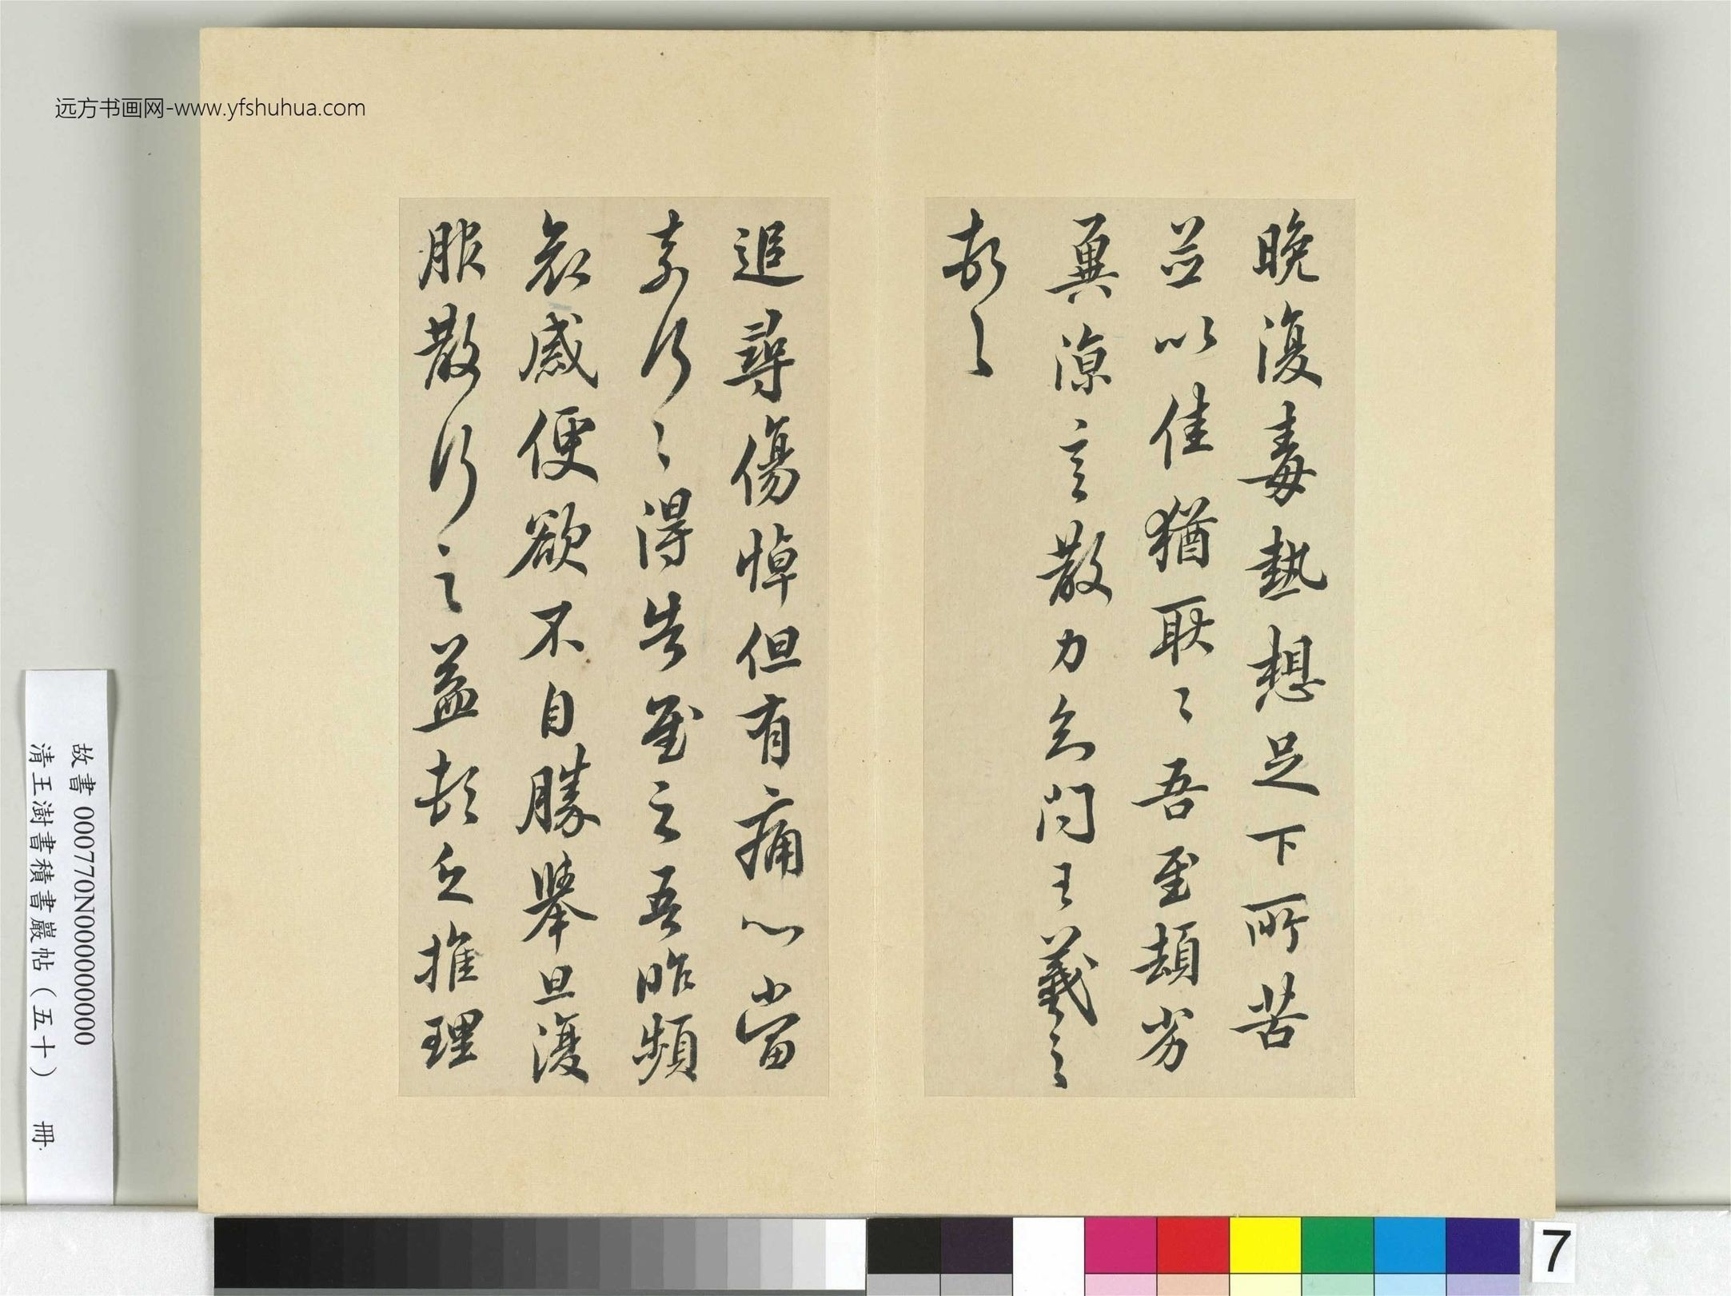 远方书画网-www.yfshuhua.com
晚復毒熱想足下所苦
並以佳猶耿〻吾至頓劣
冀涼言散力知問王羲之
頓首
追尋傷悼但有痛心當
奈何〻得告慰之吾昨頻
哀感便欲不自勝舉旦復
服散行之益頓乏推理
故書 000770N000000000
清王澍書積書巖帖(五十) 冊
7